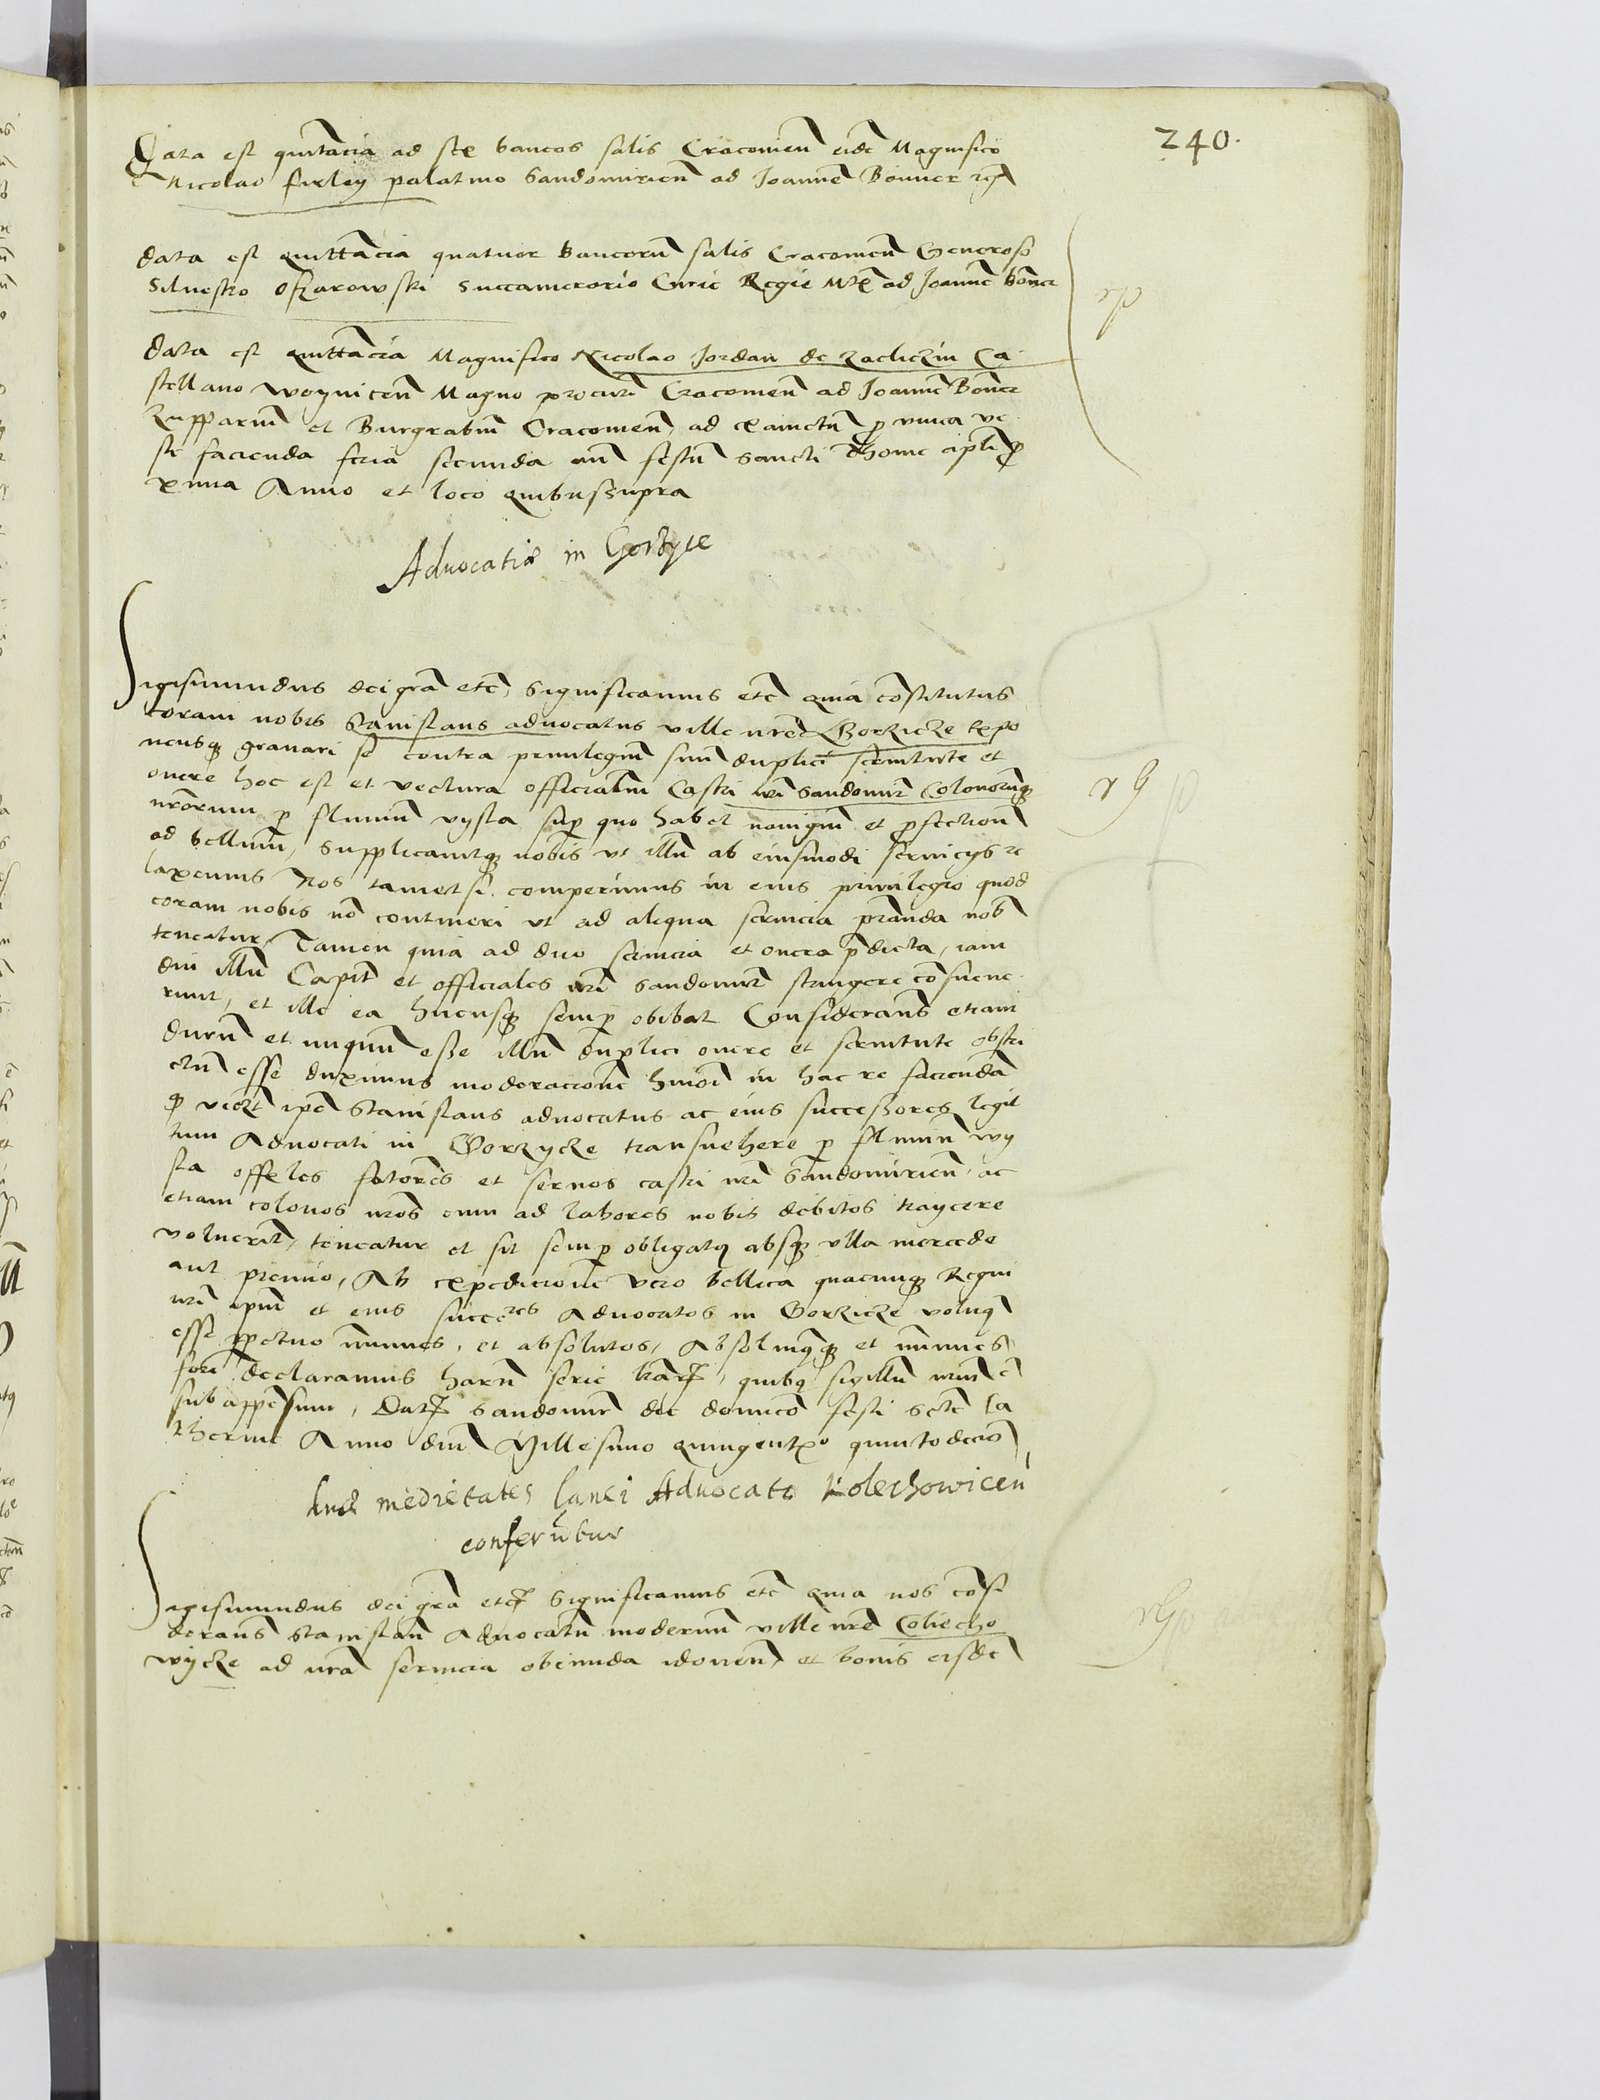 240.
Data est quitãcia ad sex bancos salis Cracovien̄ eidē Magnifico
Nicolao firley palatino Sandomirien̄ ad Joannē Bonner
data est quittãcia quatuor Bancorū salis Cracovien̄ Generoso
Silvestro Ozarowski Succamerario Curie Regie Mtẽ ad Joannē bonēr
data est quittãcia Magnifico Nicolao Jordan de zacliczin Ca
stellano Woynicen̄ Magno procurī Cracovien̄ ad Joannē Bonēr
Zuppariū et Burgrabiū Cracovien̄ ad
facienda feria secunda an̄ festū sancti Thome apli
xima Anno et loco quibussupra
Advocatia in Gorzyce
Sigismundus dei grã etc̄ Significamus etc̄ quia cõstitutus
coram nobis Stanislaus advocatus ville nrẽ Gorzicze expo
neusq̃ gravari se contra privilegiū suū duplici servitute et
onere hoc est et vectura officialiū Castri nri Sandomir̄ Colonorūq̃
nrõrum p fluviū vysla sup quo habet navigiū et pfectionē
ad bellum, Supplicavitq̃ nobis vt illū ab eiusmodi servicys re
laxemus Nos tametsi comperimus in eius privilegio quod
coram nobis nõ contineri vt ad aliqua servicia prãnda nob̄
teneatur Tamen quia ad duo servicia et onera pdicta, iam
diu illū Capit̄ et officiales nri Sandomir̄ stringere cõsueue
runt, et ille ea hucusq̃ semp obibat Considerans etiam
durū et iniquū esse illū duplici onere et servitute obstri
ctū esse duximus moderacionē hmõi in hac re faciendã
q videl̄t ipē Stanislaus advocatus ac eius successores legit
timi Advocati in Gorzycze transuehere p fluviū wy
sla offiles factores et seruos castri nri Sandomirien̄ ac
etiam colonos nros cum ad labores nobis debitos traycere
voluerīt, teneatur et sit semp obligatq absq̃ vlla mercede
aut premio, Ab expedicione vero bellica quacunq̃ Regni
nri ipm̄ et eius succēres Advocatos in Gorzicze volūq
esse ppetuo īmunes, et absolutos, Absoluīqq̃ et īmunes
fore declaramus harū serie lrãrū, quibq sigillū nrm̄ ē
subappensum, Dat̄ Sandomir̄ die dominico festi sctē Ca
therine Anno dni Millesimo quingentxo quintodecīo
due medietates lanei Advocato Kolechowicen̄
conferūtur
Sigismundus dei grã etc̄ Significamus etc̄ quia nos cõsi
derans Stanislaū Advocatū modernū ville nrẽ Coliecho
wycze ad nrã servicia obeunda idoneū et bonis eisdē